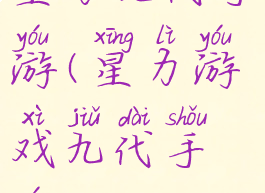 yóu xīng lì yóu
游(星力游
xì jiǔ dài shǒu
戏九代手